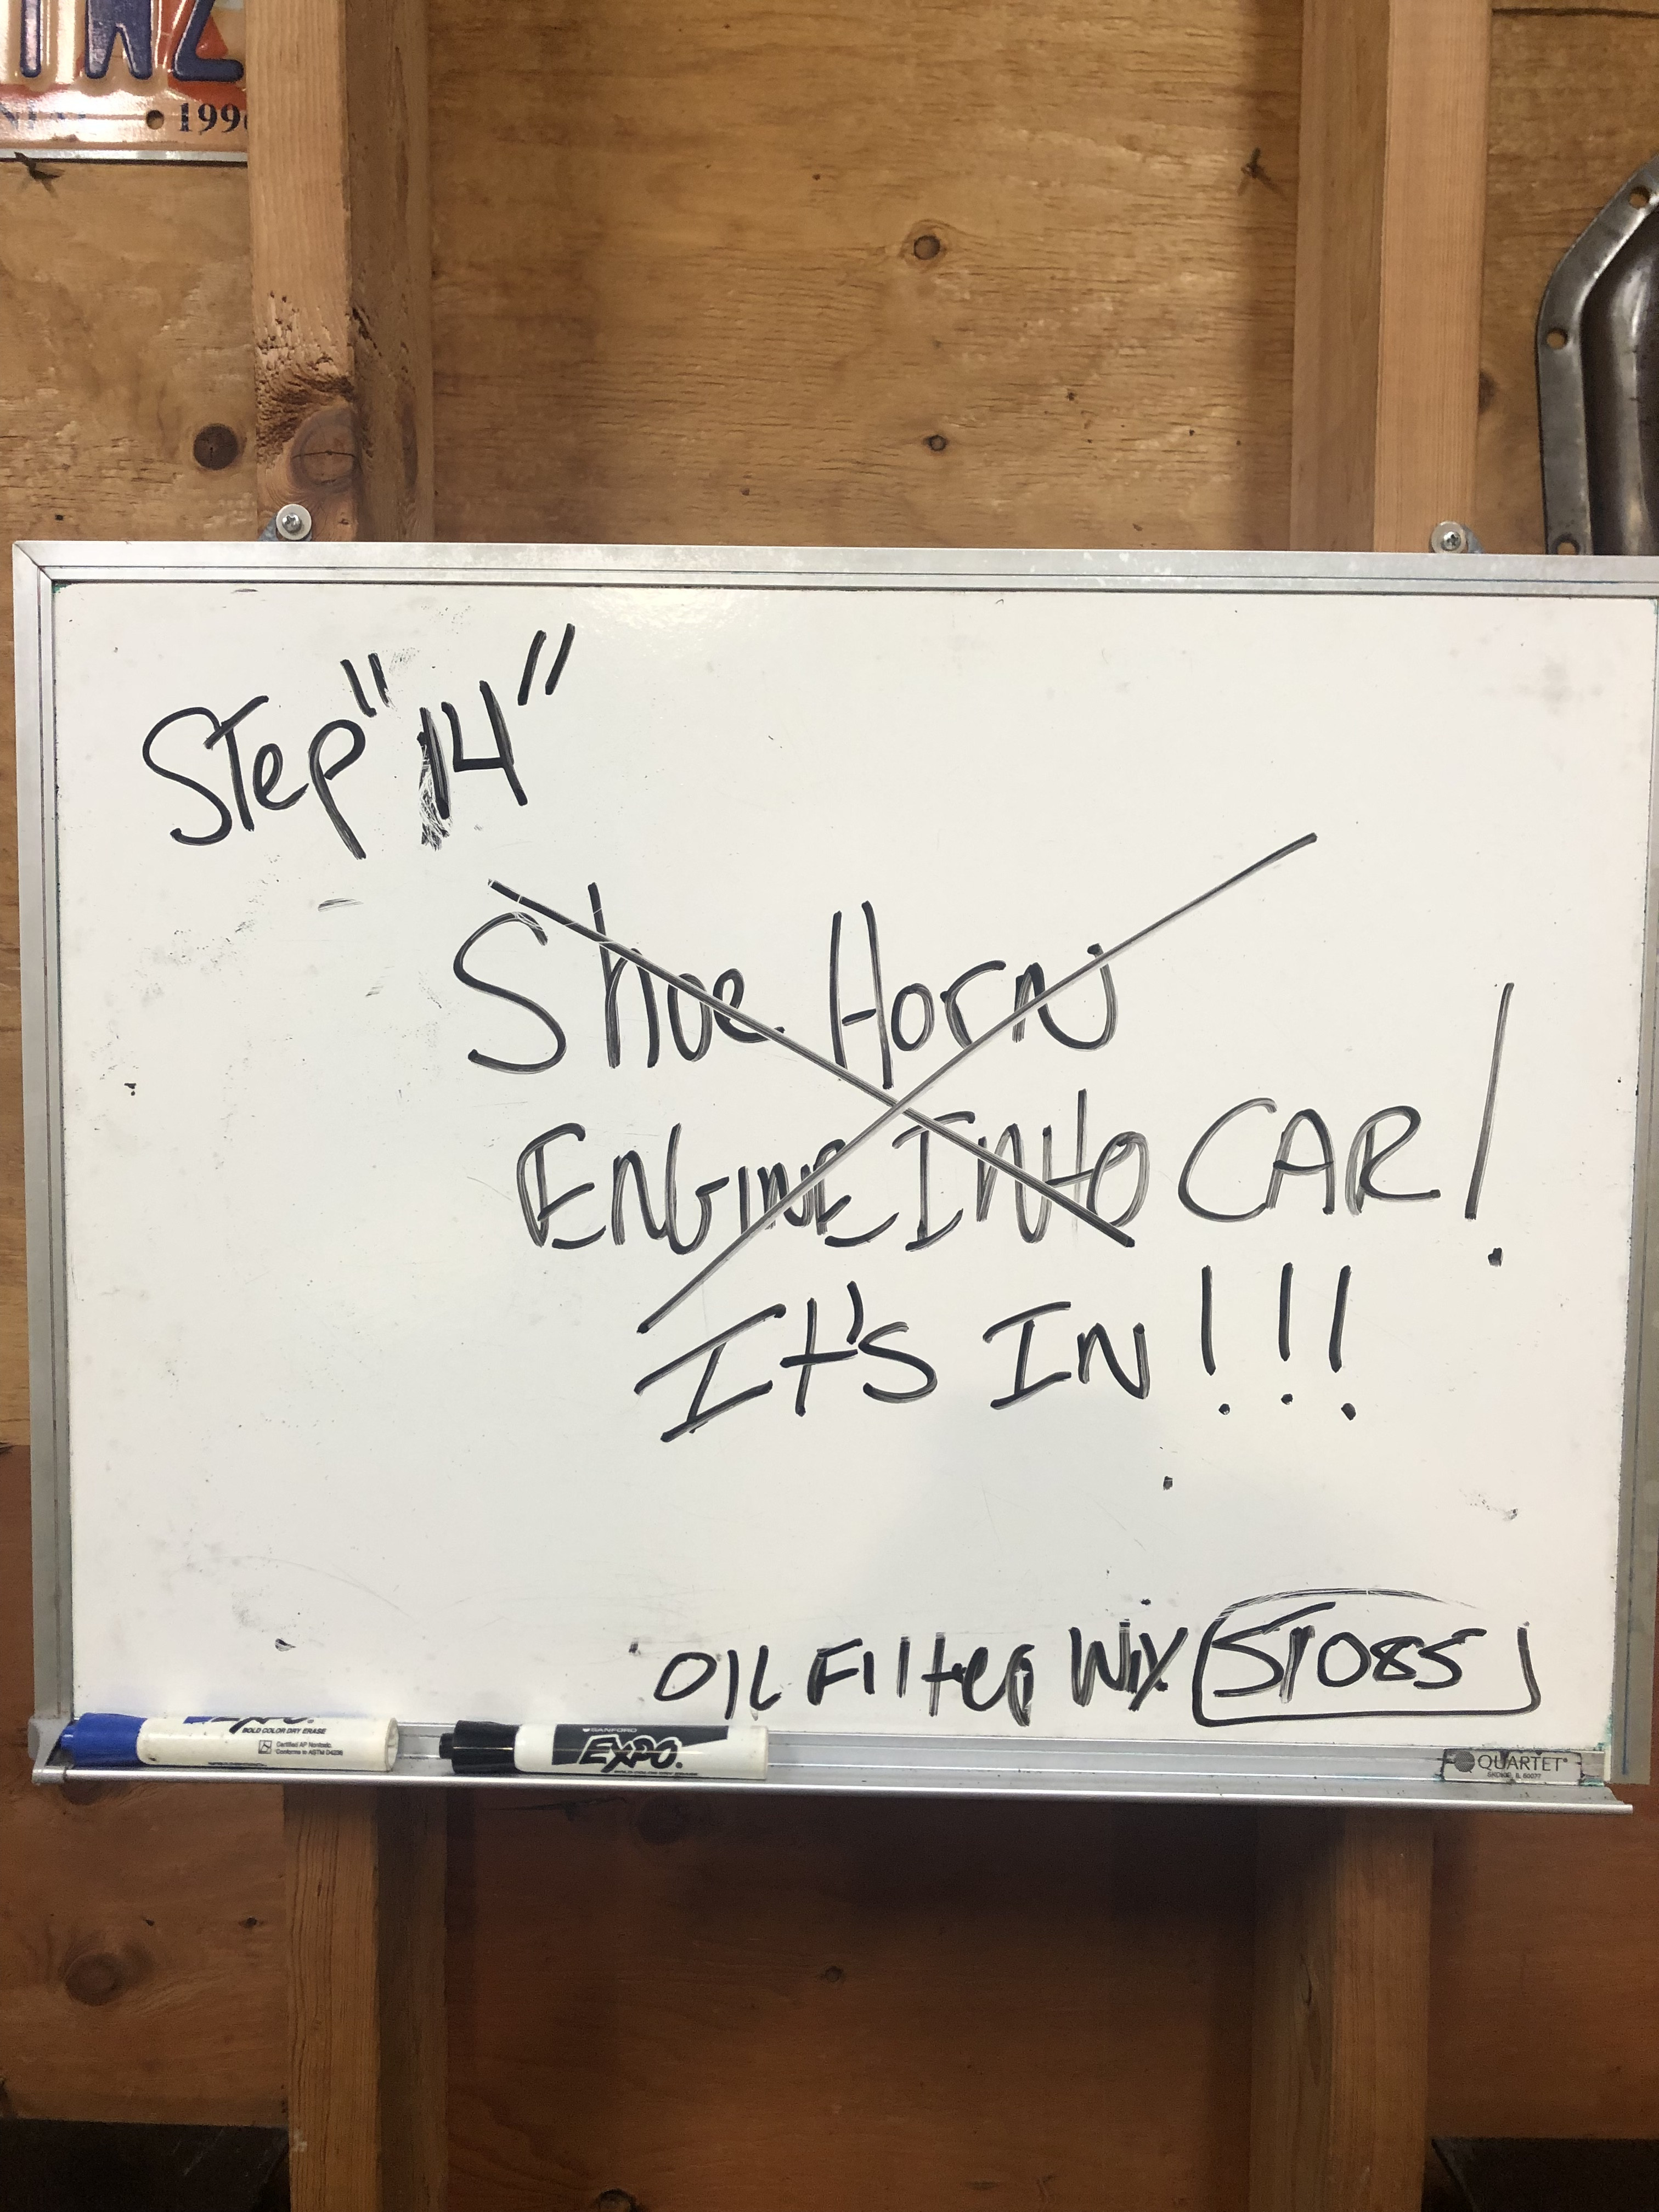 1996
Step "14"
Shoe Horn
ENGINE INto CAR!
It's IN!!!
OIL Filter Wix 51085
EXPO.
BOLD COLOR DRY ERASE
Certified AP Nontoxic.
Conforms to ASTM D4236
SANFORD
EXPO.
QUARTET
SKOKIE, IL 60077